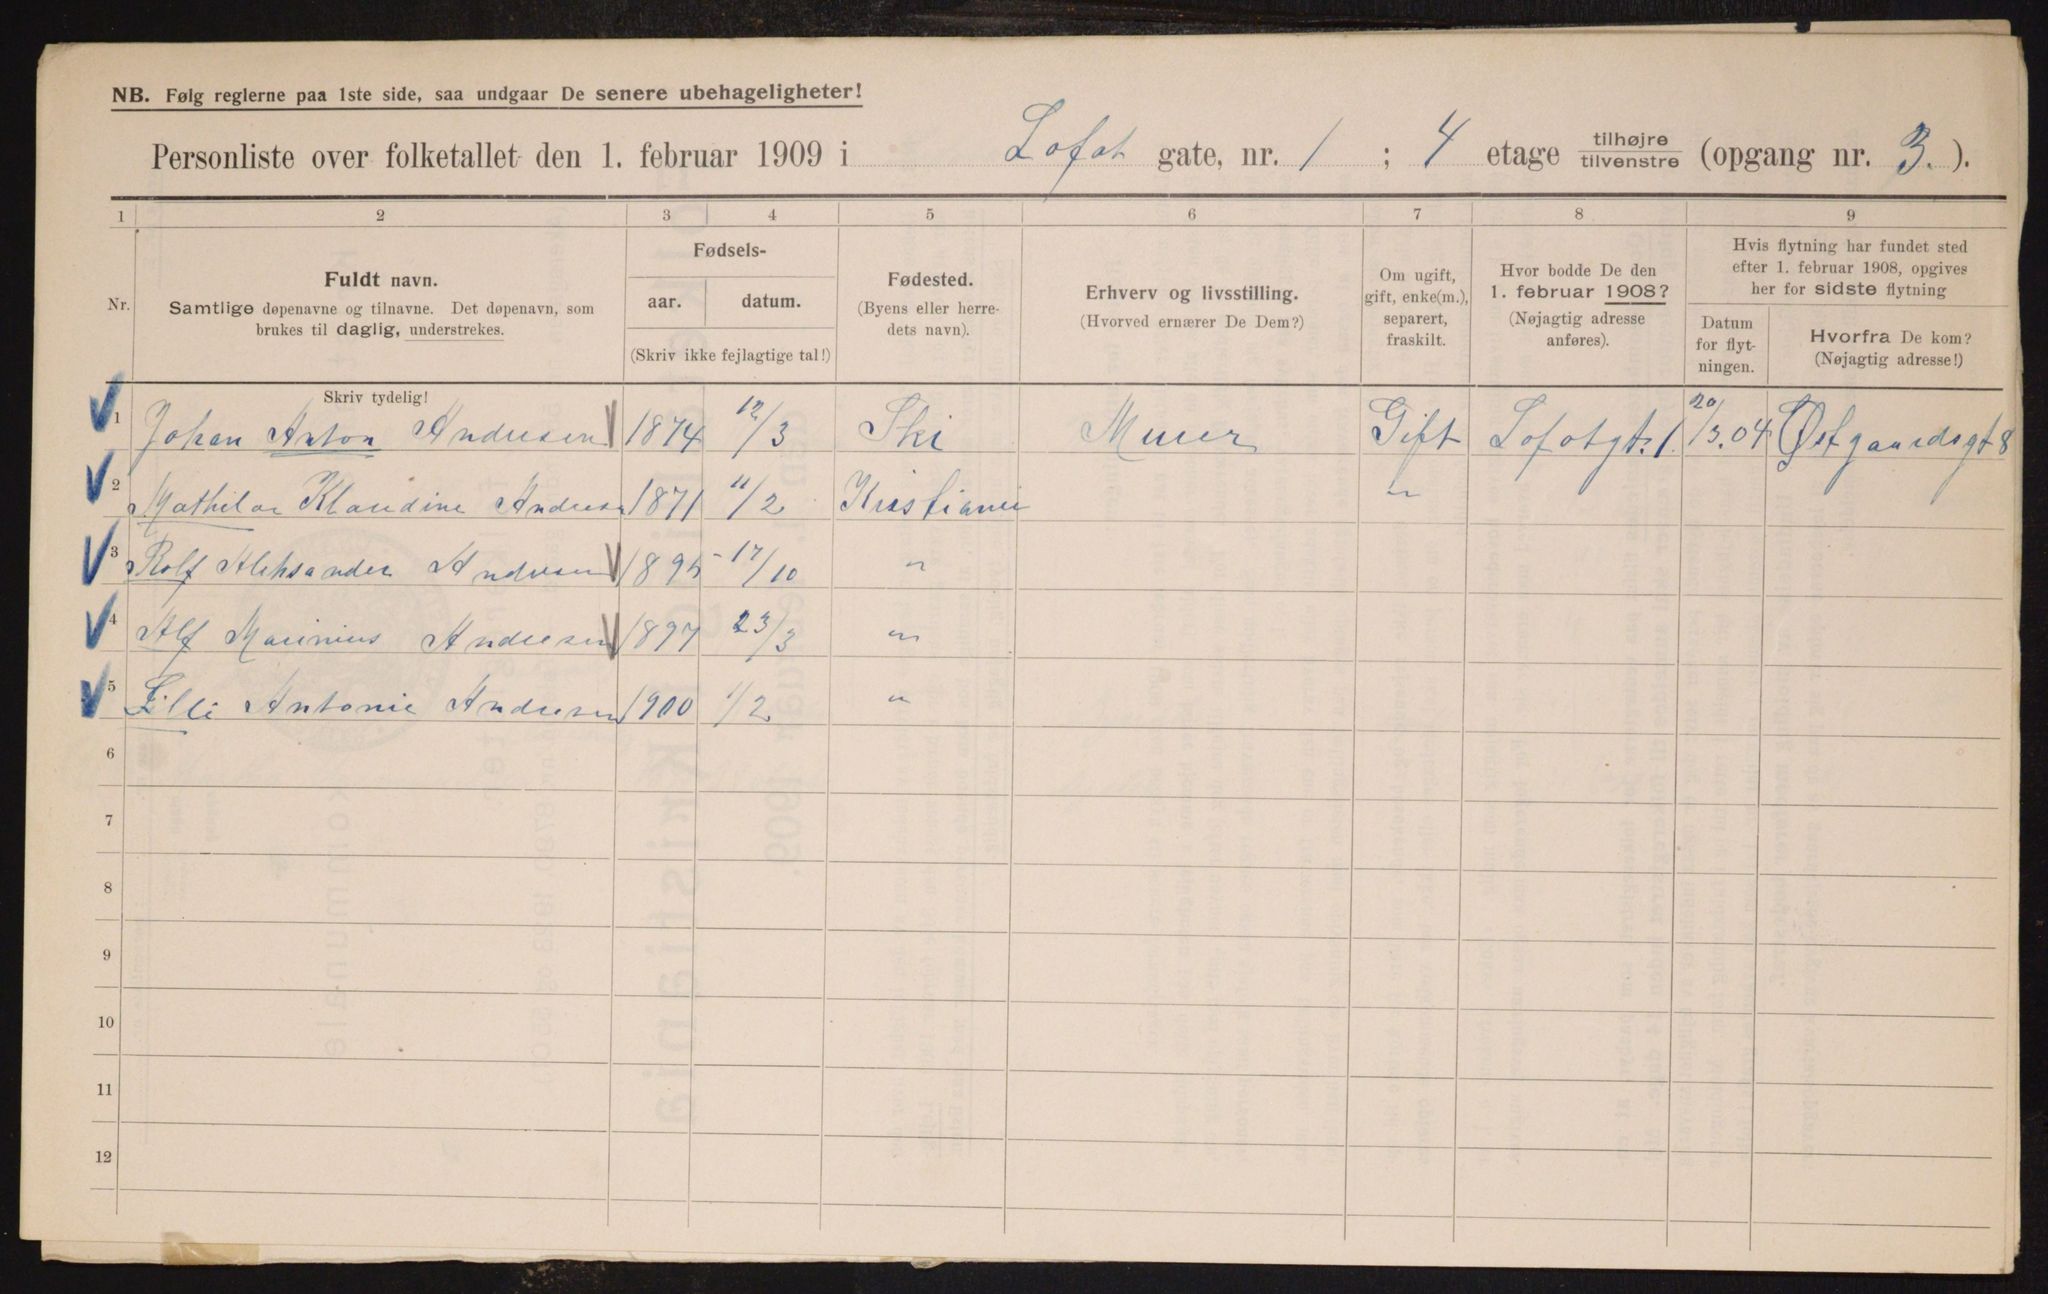 NB. Følg reglerne paa 1ste side, saa undgaar De senere ubehageligheter!
Personliste over folketallet den 1. februar 1909 i Lofot gate, nr. 1 ; 4 etage tilhøjre tilvenstre (opgang nr. 3. ).
1 2 3 4 5 6 7 8 9
Nr.
Fuldt navn.
Samtlige døpenavne og tilnavne. Det døpenavn, som
brukes til daglig, understrekes.
Fødsels-
aar. datum.
(Skriv ikke fejlagtige tal!)
Fødested.
(Byens eller herre-
dets navn).
Erhverv og livsstilling.
(Hvorved ernærer De Dem?)
Om ugift,
gift, enke(m.),
separert,
fraskilt.
Hvor bodde De den
1. februar 1908?
(Nøjagtig adresse
anføres).
Hvis flytning har fundet sted
efter 1. februar 1908, opgives
her for sidste flytning
Datum
for flyt-
ningen.
Hvorfra De kom?
(Nøjagtig adresse!)
Skriv tydelig!
1 Johan Anton Andresen 1874 12/3 Ski Murer Gift Lofotgt. 1. 20/3.04 Østgaardsgt 8
2 Mathilde Klaudine Andresen 1871 11/2 Kristiania "
3 Rolf Aleksander Andresen 1895 17/10 "
4 Alf Marinius Andresen 1897 23/3 "
5 Lilli Antonie Andresen 1900 1/2 "
6
7
8
9
10
11
12